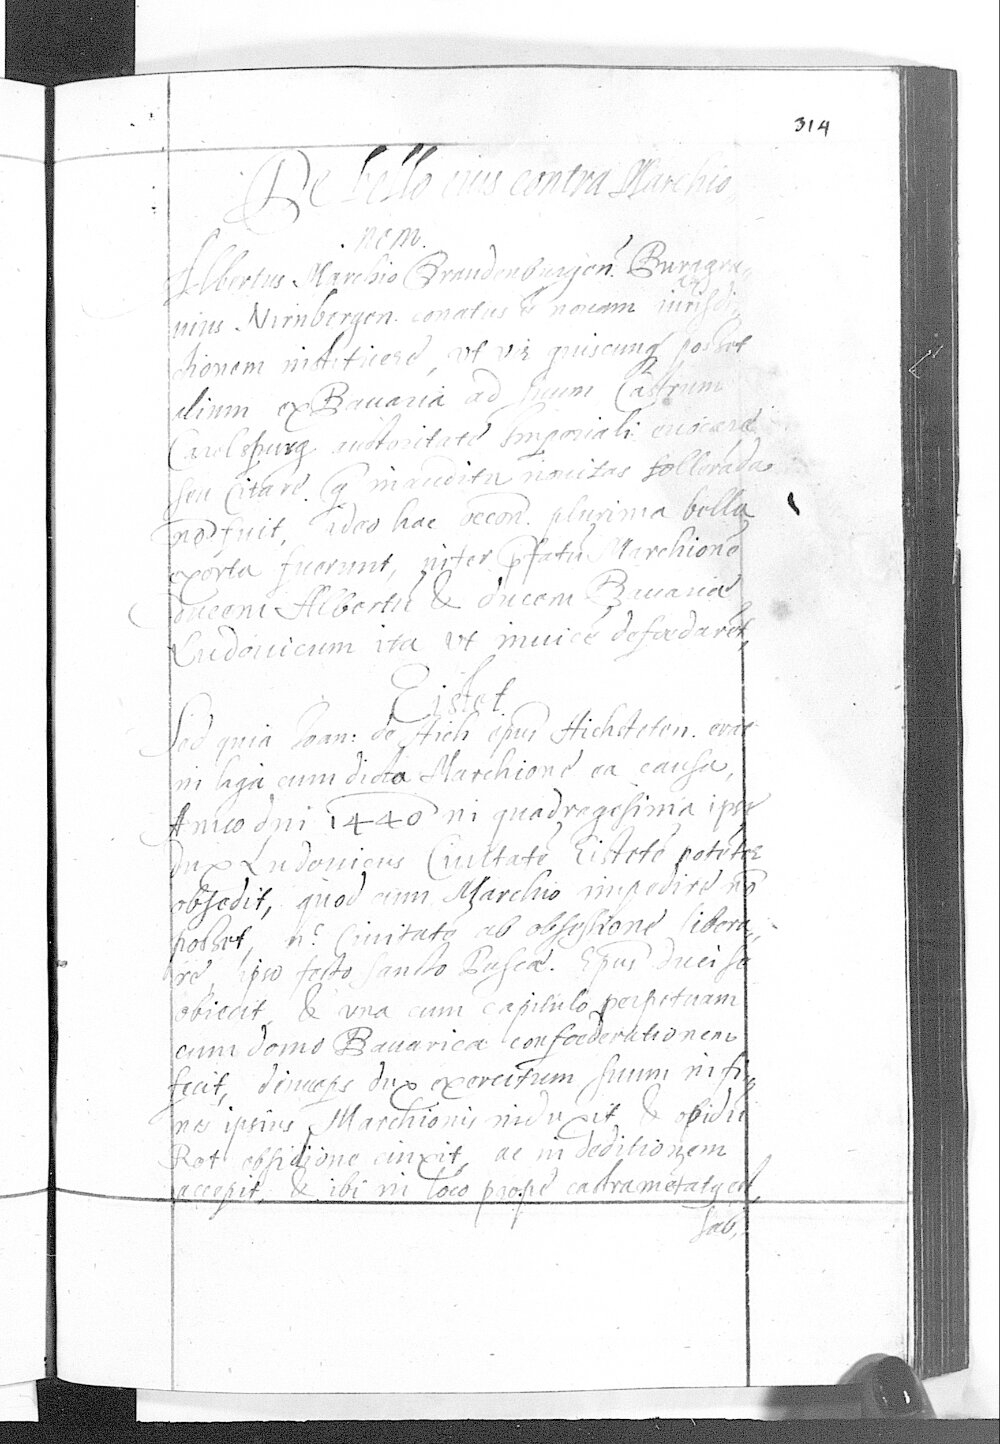 314
De bello eius contra Marchio
nem.
Albertus Marchio Brandenburgen. Burggra,
uius Nirnbergen. conatus ē nouam iurisdi,
ctionem instituere, vt vix quiscunq posset
alium ex Bauaria ad suum Castrum
Carelspurg autoritate Imperiali euocare
seu Citare. q inaudita nouitas tollerada
nō fuit, ideo hac occon. plurima bella
exorta fuerunt, inter pfatū Marchionē
ducem Albertū & ducem Bauariæ
Ludouicum ita vt inuicē defœdarēt,
Eistet
Sed quia Ioan: de Aich epus Aichsteten. erat
in liga cum dicto Marchione ea causa,
Anno dni 1440 in quadragesima ipse
dux Ludouicus Ciuitatē Eistetē potēter
obsedit, quod cum Marchio impedire nō
posset, nc Ciuitatē ab obsessione libera,
re, ipso festo sancto Pascæ. Epus duci se
obiecit, & vna cum capitulo perpetuam
cum domo Bauarica confœderationem
fecit, deinceps dux exercitum suum in fi,
nes ipsius Marchionis induxit, & opidū
Rot obsidione cinxit, ac in deditionem
accepit, & ibi in loco prope castrametat9 est,
sab,